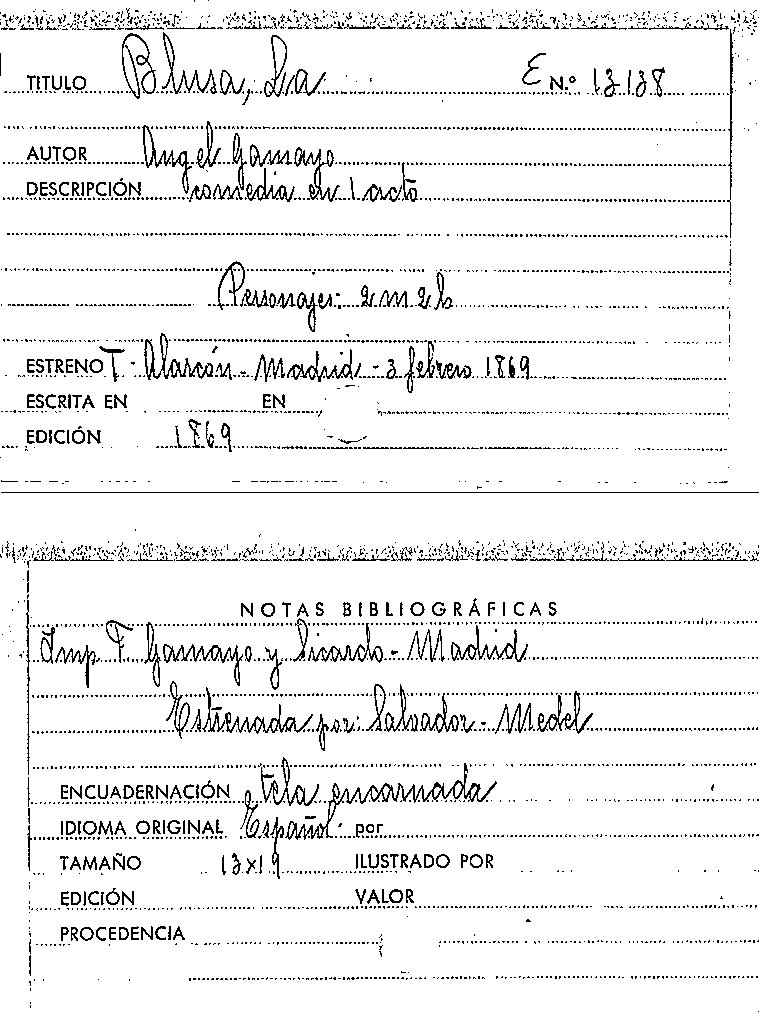 TITULO Blusa, La E N.º 13138
AUTOR Angel Gamayo
DESCRIPCIÓN comedia en 1 acto
Personajes: 2 m 2 h
ESTRENO T. Alarcón - Madrid - 3 febrero 1869
ESCRITA EN EN
EDICIÓN 1869
NOTAS BIBLIOGRÁFICAS
Imp F. Gamayo y Sicardo - Madrid
Estrenada por: Salvador - Medel
ENCUADERNACIÓN tela encarnada
IDIOMA ORIGINAL Español por
TAMAÑO 13x19 ILUSTRADO POR
EDICIÓN VALOR
PROCEDENCIA